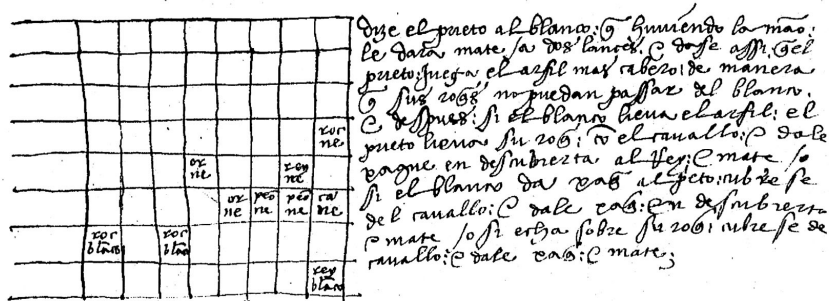 roc
ne
or
ne
rey
ne
or
ne
peo
ne
peo
ne
ca
ne
roc
blāco
roc
blāco
rey
blāco
dize el prieto al blanco: q̄ huviendo la māo:
le dara mate /a dos lances. & do se assi: q̄ el
prieto: juega el arfil mas cabero: de manera
q̄ sus rog̃s no puedan passar del blanco.
& despues: si el blanco lieva el arfil: el
prieto lieva su rog̃: cō el cavallo: & dale
xaque en descubierta al Rey: & mate /o
si el blanco da xag̃ al p̄eto: cubre se
del cavallo: & dale xag̃: en descubierta
& mate /o si echa sobre su rog̃: cubre se de
cavallo: & dale xag̃: & mate: